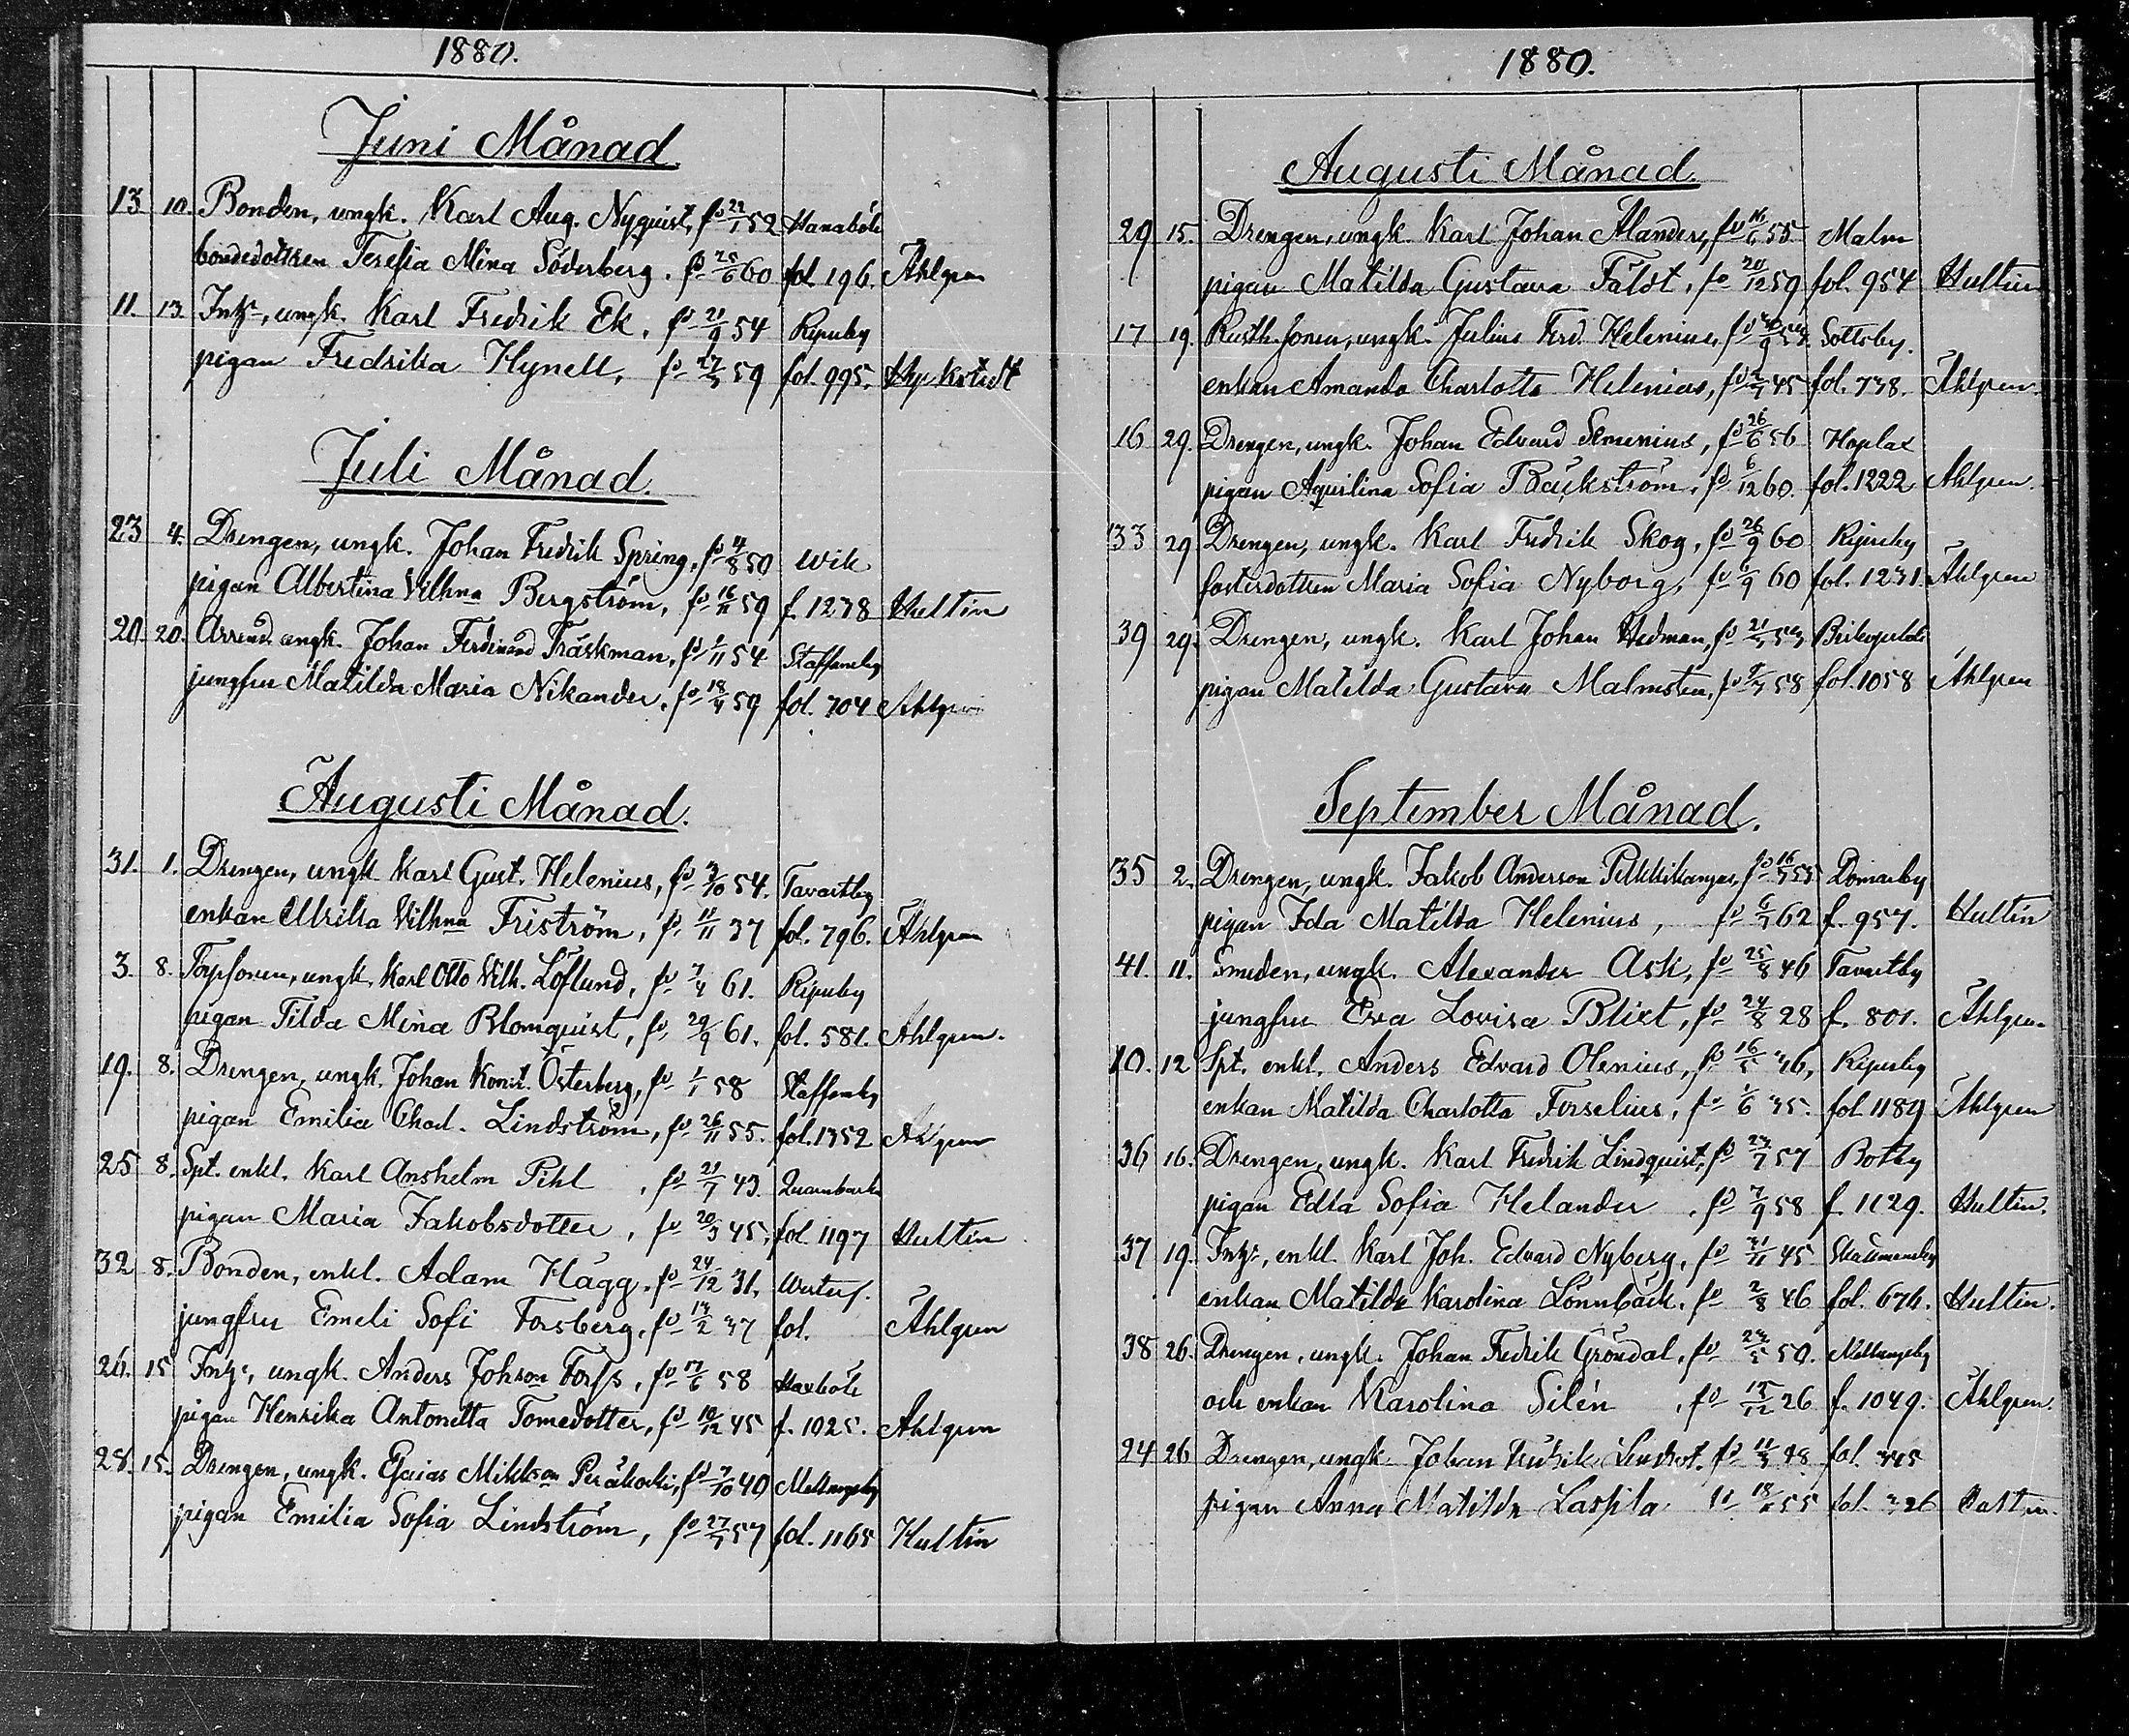 1880.
Juni Månad
13 10. Bonden, ungk. Karl Aug. Nyquist, fd 22/1 52 Hanaböle
bondedottren Teresia Mina Söderberg. fd 25/6 60 fol. 196. Åhlgren
11. 13. ungk. Karl Fredrik Ek, fd 21/9 54 Ripuby
pigan Fredrika Hynell, fd 59 fol. 995.
Juli Månad.
23 4. Drengen, ungk. Johan Fredrik Spring, fd 50 Wik
pigan Albertina Vilhna Bergström, fd 16/11 59 f. 1238 Hultin
20. 20. Arrend. ungk. Johan Ferdinand Träskman, fd 1/11 54 Staffansby
jungfru Matilda Maria Nikander, fd 18/4 59 fol. 704 Ahlgren
Augusti Månad.
31. 1. Drengen, ungk Karl Gust. Helenius, fd 3/10 54. Tavastby
enkan Ulrika Vilhna Friström, fd 11/11 37 fol. 796. Åhlgren
3. 8. Torpsonen, ungk. Karl Otto Vilh. Löflund, fd 7/4 61. Ripuby
pigan Tilda Mina Blomquist, fd 29/9 61. fol. 581. Ahlgren.
19. 8. Drengen, ungk. Johan Konst. Österberg, fd 1/1 58 Staffansby
pigan Emilia Charl. Lindström, fd 26/11 55. fol. 1352 Ahlgren
25 8. Spt. enkl. Karl Anshelm Pihl, fd 21/7 43. Qvarnbacka
pigan Maria Jakobsdotter, fd 20/3 45, fol. 1197 Hultin
32 8. Bonden, enkl. Adam Hägg, fd 24/12 31,
jungfru Emeli Sofi Forsberg, fd 37 fol. Åhlgren
26. 15 ungk. Anders Johson Forss, fd 17/6 58 Haxböle
pigan Henrika Antonetta Tomedotter, fd 10/12 45 f. 1025. Ahlgren
28. 15. Drengen, ungk. Esaias Mikkson fd 7/10 40 Mellungsby
pigan Emilia Sofia Lindström, fd 57 fol. 1165 Hultin
1880.
Augusti Månad.
29 15. Drengen, ungk. Karl Johan Ålander, fd 16/6 55 Malm
pigan Matilda Gustava Fäldt, fd 20/12 59 fol. 954 Hultin
17 19. ungk. Julius Ferd. Helenius, fd Sottsby.
enkan Amanda Charlotta Helenius, fd 45 fol. 738. Åhlgren.
16 29. Drengen, ungk. Johan Edvard Semenius, fd 26/6 56 Hoplax
pigan Aqvilina Sofia Bäckström, fd 6/12 60. fol. 1222 Ahlgren.
33 29 Drengen, ungk. Karl Fredrik Skog, fd 26/9 60 Ripuby
fosterdottren Maria Sofia Nyborg, fd 60 fol. 1231. Åhlgren
39 29. Drengen, ungk. Karl Johan Hedman, fd
pigan Matilda Gustava Malmsten, fd 58 fol. 1058 Ahlgren
September Månad.
35 2. Drengen, ungk. Jakob Anderson fd 55 Domarby
pigan Ida Matilda Helenius, fd 62 f. 957. Hultin
41. 11. Smeden, ungk. Alexander Ask, fd 25/8 46 Tavastby
jungfru Eva Lovisa Blixt, fd 24/8 28 f. 801. Åhlgren
10. 12 Spt. enkl. Anders Edvard Olenius, fd 16/5 36, Ripuby
enkan Matilda Charlotta Forselius, fd 1/6 35. fol. 1189 Åhlgren
36 16. Drengen, ungk. Karl Fredrik Lindquist, fd 57 Botby
pigan Edla Sofia Helander, fd 7/9 58 f. 1129. Hultin.
37 19. enkl. Karl Joh. Edvard Nyberg, fd 45
enkan Matilda Karolina Lönnbäck, fd 2/8 46 fol. 676. Hultin.
38 26. Drengen, ungk. Johan Fredrik Gröndal, fd 50. Mellungsby
och enkan Karolina Silén, fd 26 f. 1049. Åhlgren.
24 26 Drengen, ungk. Johan Fredrik fd 48 fol.
pigan Anna Matilda Laspila 55 fol. 326